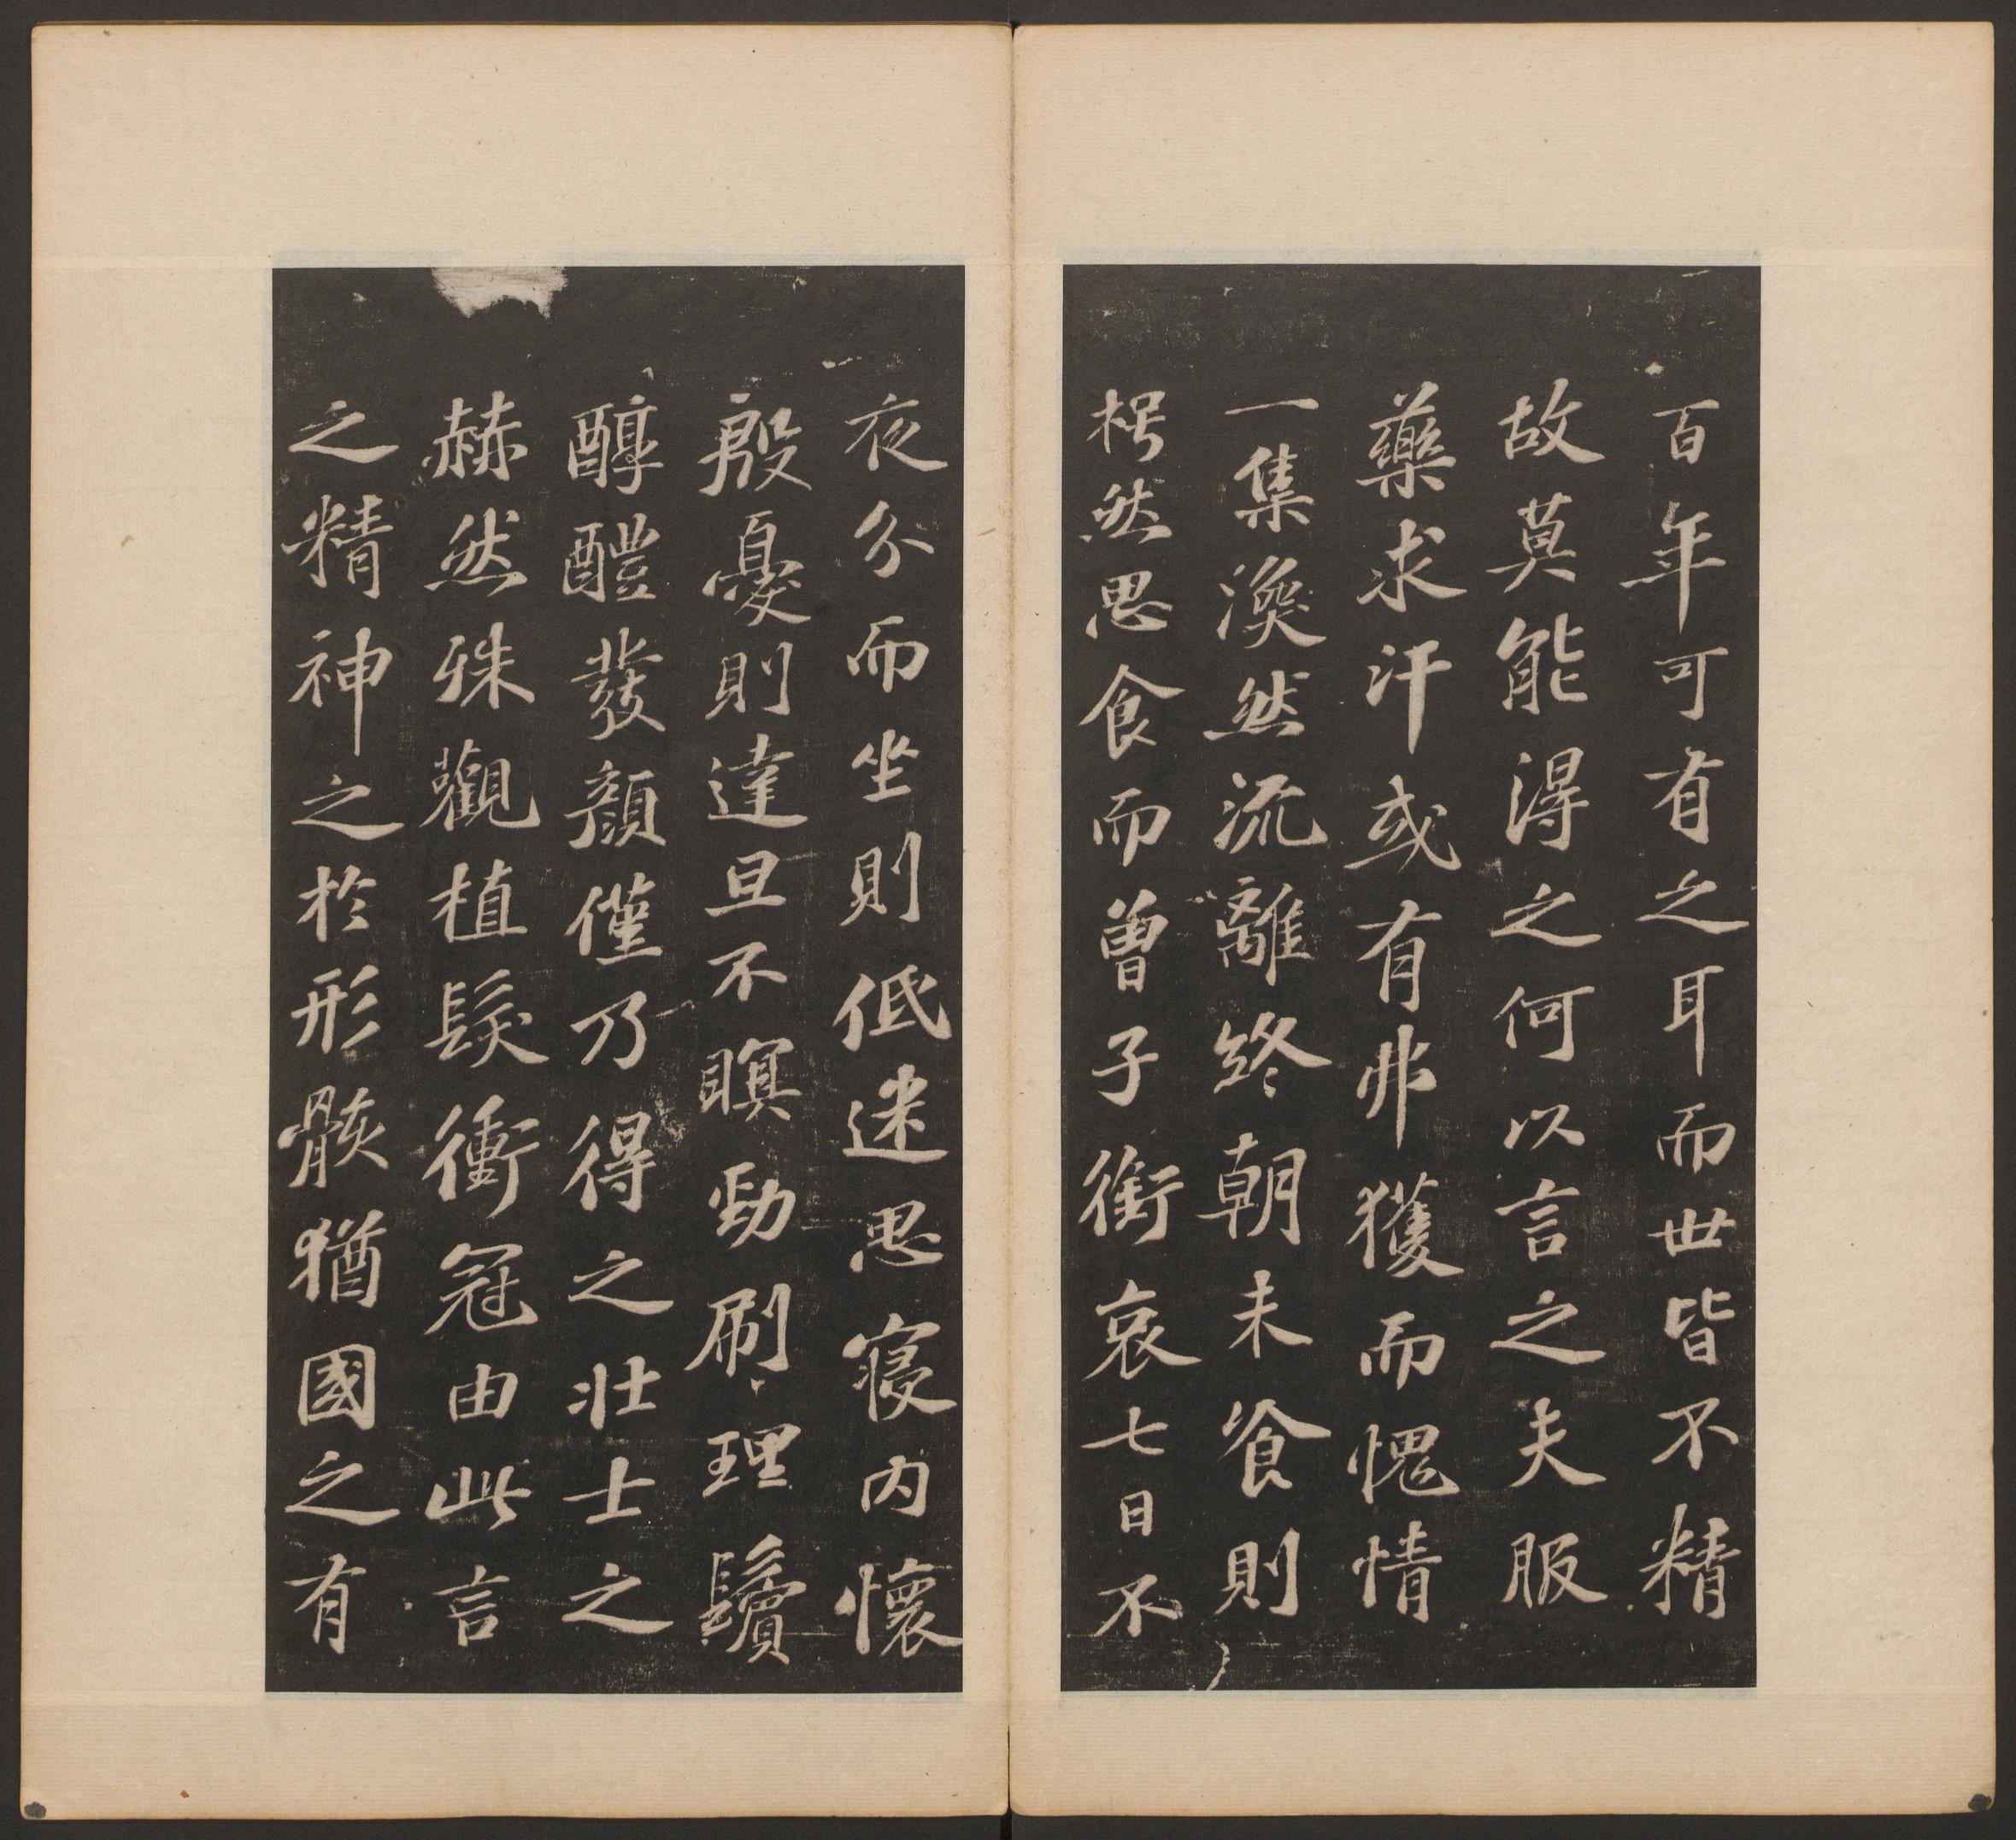 百年可有之耳而世皆不精
故莫能得之何以言之夫服
藥求汗或有弗獲而愧情
一集渙然流離終朝未餐則
枵然思食而曾子銜哀七日不
夜分而坐則低迷思寢内懷
殷憂則達旦不瞑勁刷理鬢
醇醴發顏僅乃得之壯士之
赫然殊觀植髮衝冠由此言
之精神之於形骸猶國之有